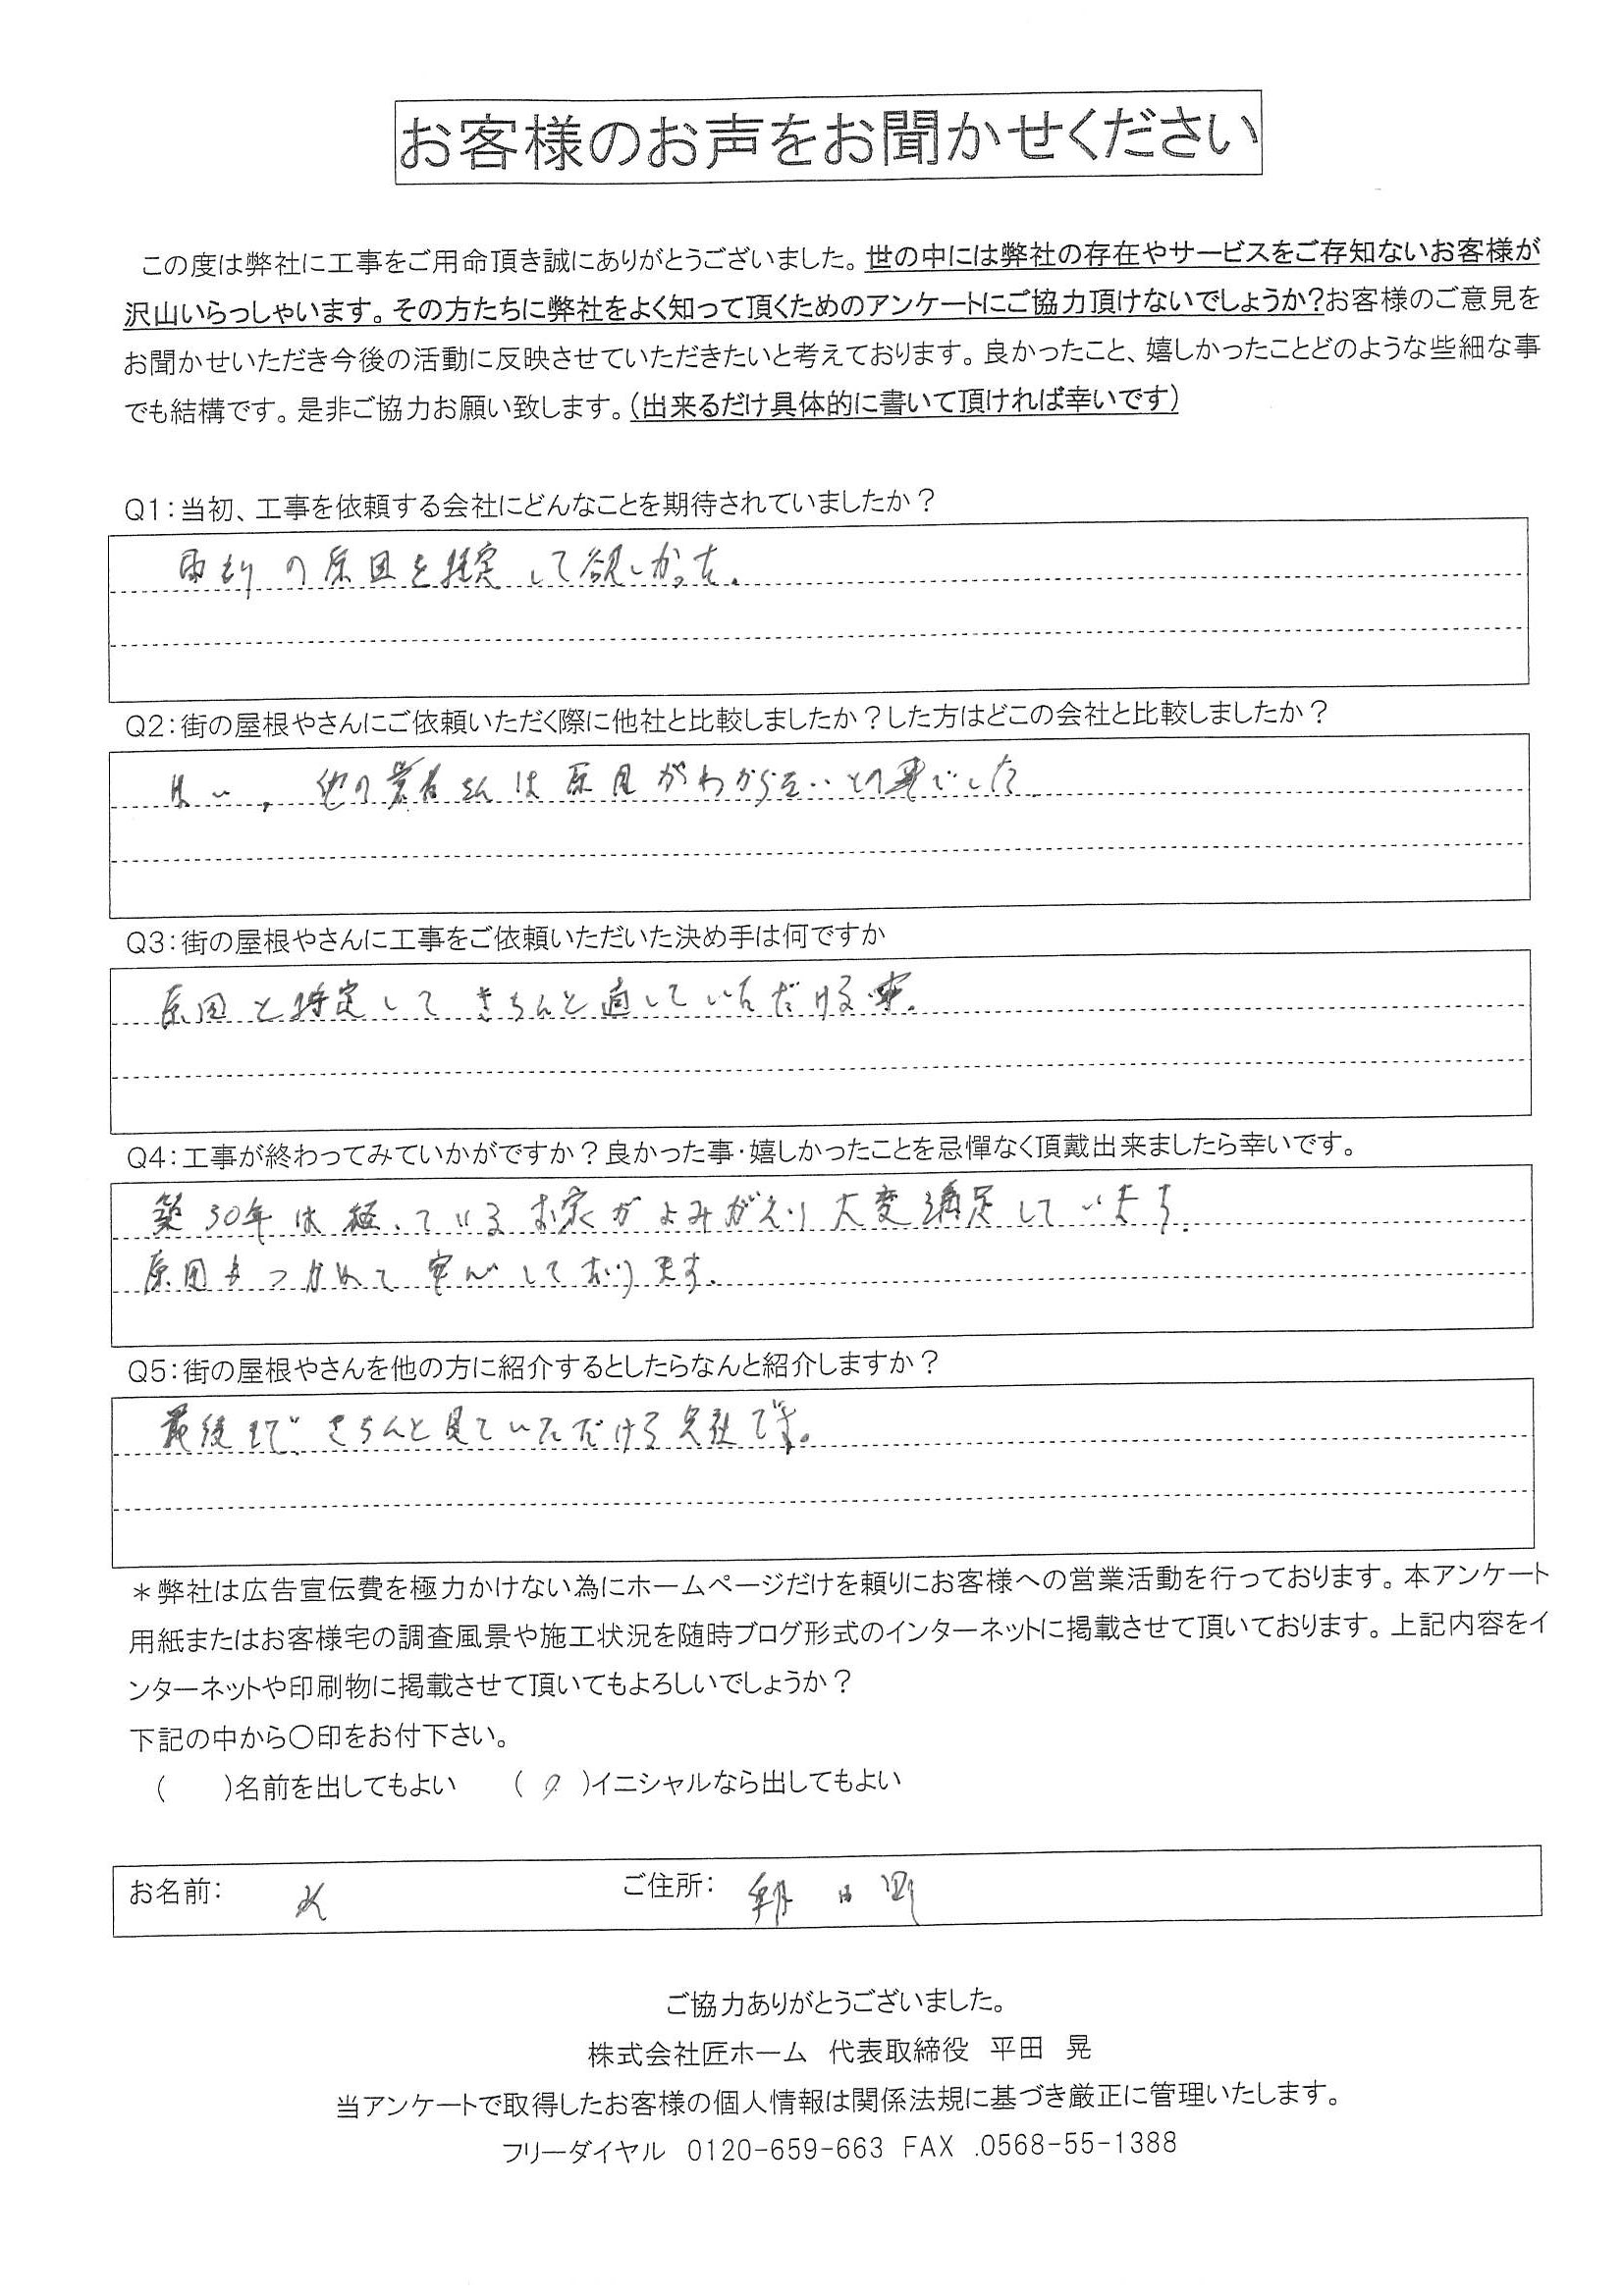 お客様のお声をお聞かせください
この度は弊社に工事をご用命頂き誠にありがとうございました。世の中には弊社の存在やサービスをご存知ないお客様が
沢山いらっしゃいます。その方たちに弊社をよく知って頂くためのアンケートにご協力頂けないでしょうか?お客様のご意見を
お聞かせいただき今後の活動に反映させていただきたいと考えております。良かったこと、嬉しかったことどのような些細な事
でも結構です。是非ご協力お願い致します。(出来るだけ具体的に書いて頂ければ幸いです)
Q1:当初、工事を依頼する会社にどんなことを期待されていましたか?
雨もりの原因を推定して欲しかった。
Q2:街の屋根やさんにご依頼いただく際に他社と比較しましたか?した方はどこの会社と比較しましたか?
はい、他の業者さんは原因がわからないとの事でした
Q3:街の屋根やさんに工事をご依頼いただいた決め手は何ですか
原因を特定してきちんと直していただける事。
Q4:工事が終わってみていかがですか?良かった事・嬉しかったことを忌憚なく頂戴出来ましたら幸いです。
築30年は経っているお家がよみがえり大変満足しています。
原因もつかめて安心しております。
Q5:街の屋根やさんを他の方に紹介するとしたらなんと紹介しますか?
最後まできちんと見ていただける会社です。
*弊社は広告宣伝費を極力かけない為にホームページだけを頼りにお客様への営業活動を行っております。本アンケート
用紙またはお客様宅の調査風景や施工状況を随時ブログ形式のインターネットに掲載させて頂いております。上記内容をイ
ンターネットや印刷物に掲載させて頂いてもよろしいでしょうか?
下記の中から〇印をお付下さい。
(  )名前を出してもよい (○)イニシャルなら出してもよい
お名前: ご住所: 朝日町
ご協力ありがとうございました。
株式会社匠ホーム 代表取締役 平田 晃
当アンケートで取得したお客様の個人情報は関係法規に基づき厳正に管理いたします。
フリーダイヤル 0120-659-663 FAX .0568-55-1388